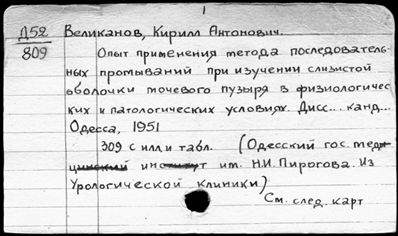 1
Д52 Великанов, Кирилл Антонович.
809 Опыт применения метода последователь-
ных промываний при изучении слизистой
оболочки мочевого пузыря в физиологичес-
ких и патологических условиях. Дисс... канд...
Одесса, 1951
309 с илл и табл. (Одесский гос. меди-
цинский институт им. Н.И. Пирогова. Из
Урологической клиники)
См. след. карт